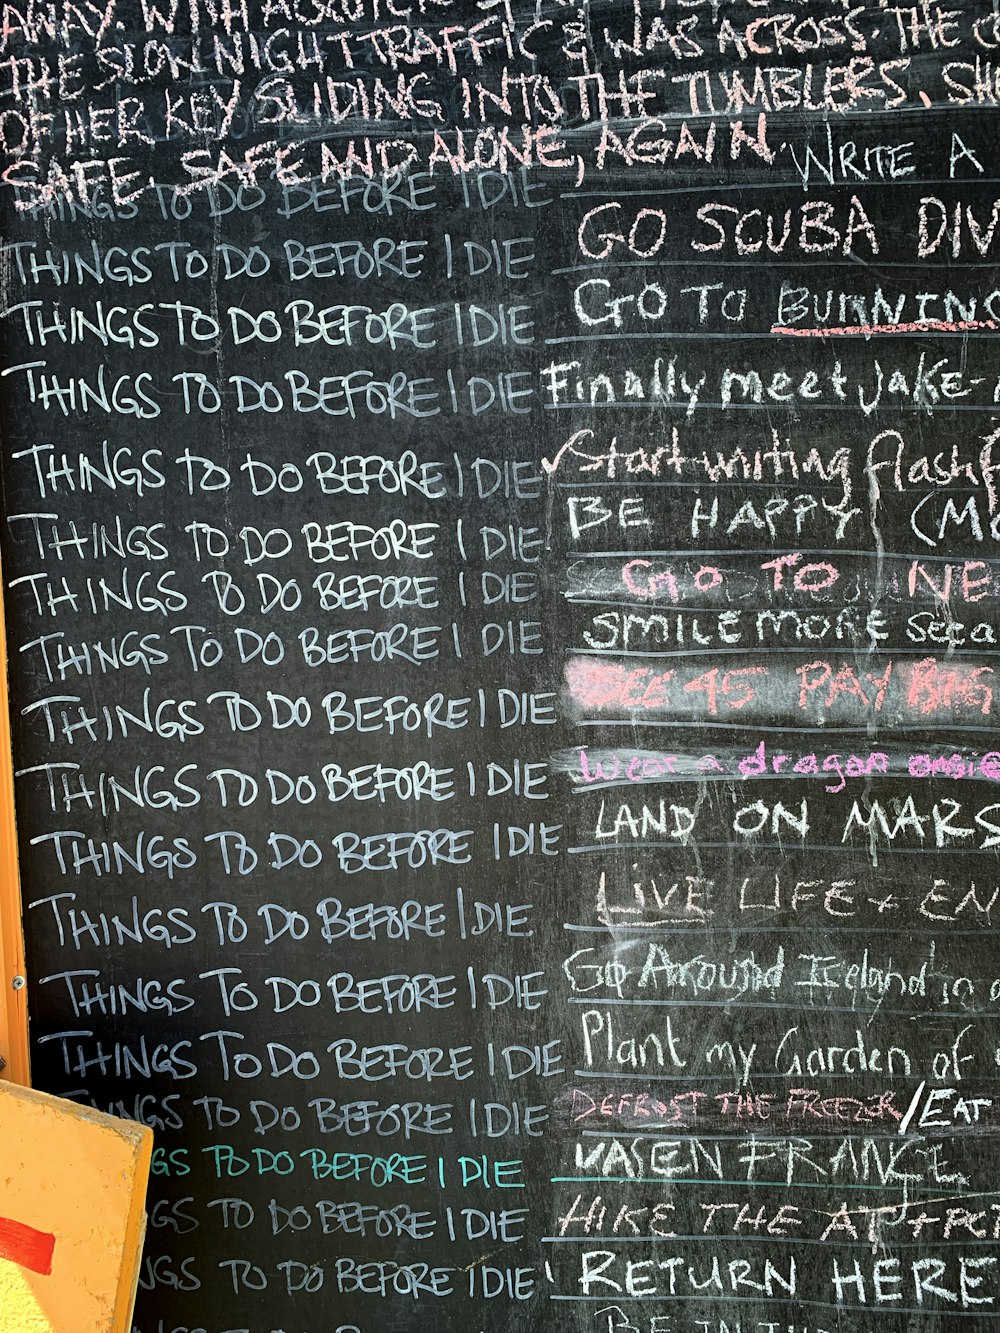 AWAY WITH
THE SLOW NIGHT TRAFFIC & WAS ACROSS. THE
OF HER KEY SLIDING INTO THE TUMBLERS,
SAFE. SAFE AND ALONE, AGAIN.
THINGS TO DO BEFORE I DIE WRITE A
THINGS TO DO BEFORE I DIE GO SCUBA DIV
THINGS TO DO BEFORE I DIE GO TO BURNING
THINGS TO DO BEFORE I DIE Finally meet Jake-
THINGS TO DO BEFORE I DIE ✓Start writing flash
THINGS TO DO BEFORE I DIE BE HAPPY (M
THINGS TO DO BEFORE I DIE GO TO NE
THINGS TO DO BEFORE I DIE SMILE MORE
THINGS TO DO BEFORE I DIE SEE 45 PAY
THINGS TO DO BEFORE I DIE Wear a dragon onsie
THINGS TO DO BEFORE I DIE LAND ON MARS
THINGS TO DO BEFORE I DIE LIVE LIFE + EN
THINGS TO DO BEFORE I DIE Go Around Iceland in a
THINGS TO DO BEFORE I DIE Plant my Garden of
NGS TO DO BEFORE I DIE DEFROST THE FREEZER/EAT
GS TO DO BEFORE I DIE EN FRANCE
GS TO DO BEFORE I DIE HIKE THE AT + PC
NGS TO DO BEFORE I DIE! RETURN HERE
BE IN